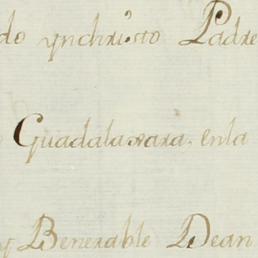 do ynchristo Padre
Guadalaxara, enla
y Benerable Dean